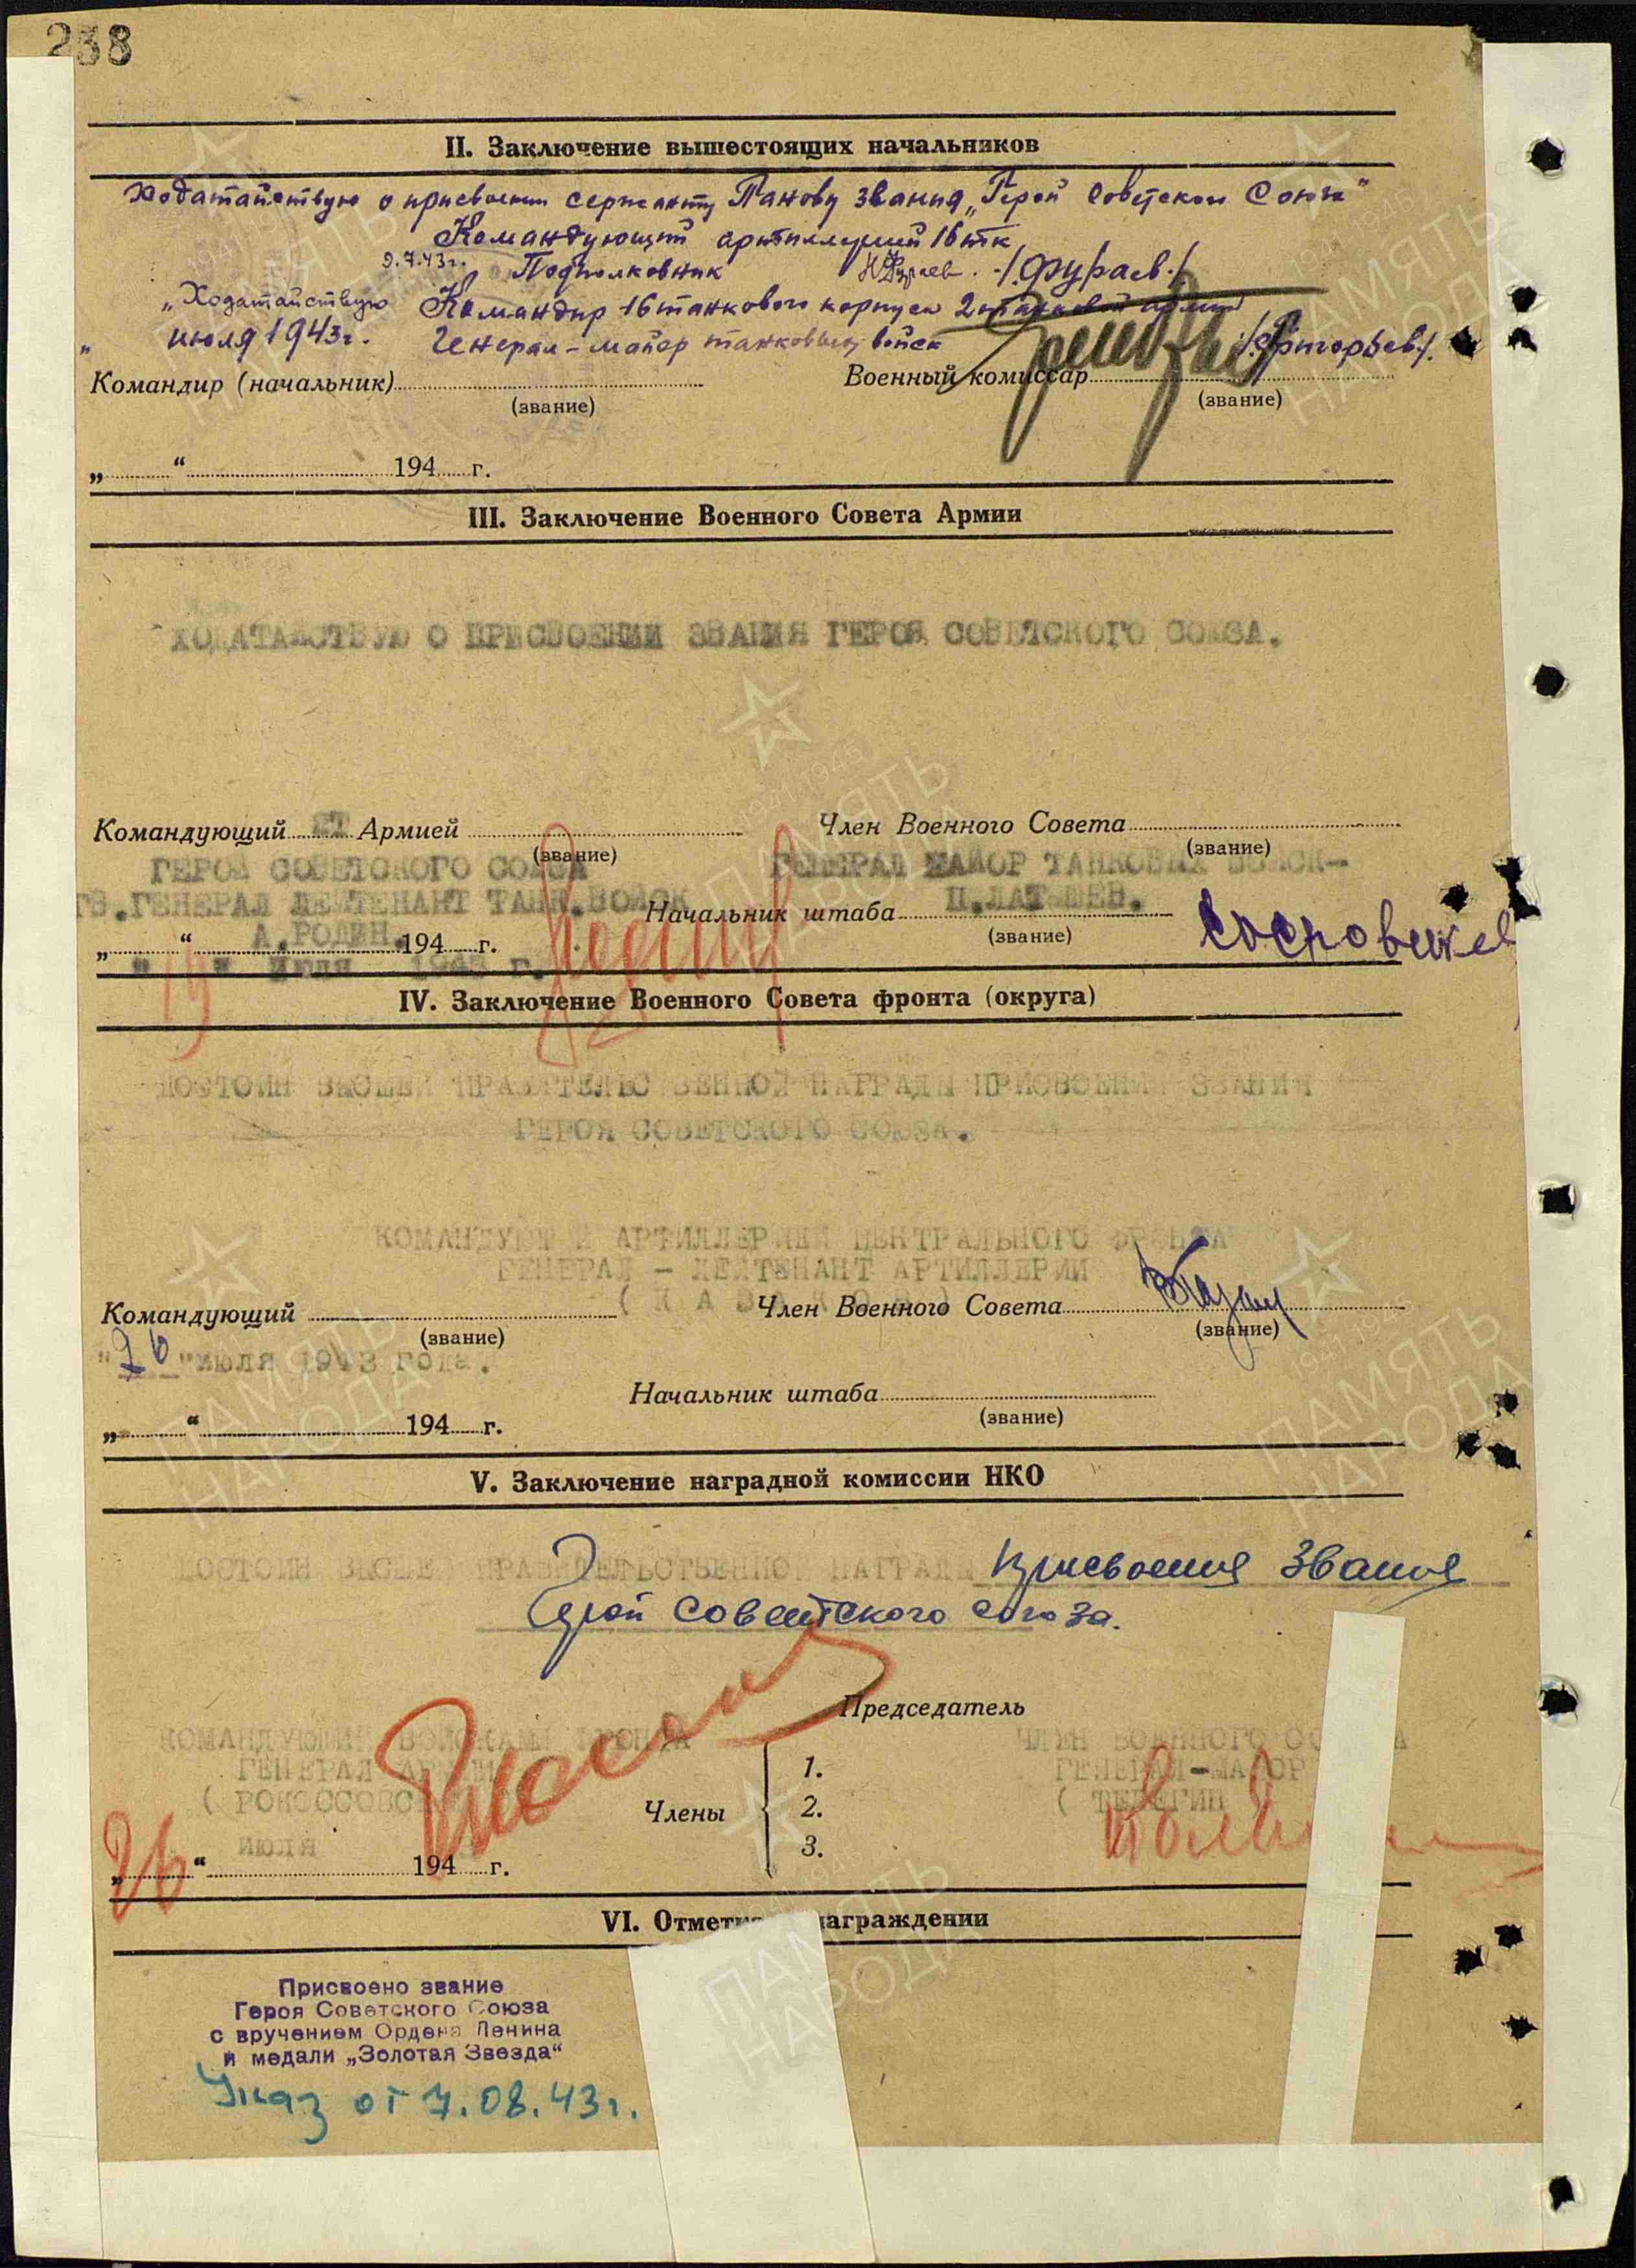 238
II. Заключение вышестоящих начальников
Ходатайствую о присвоении сержанту Панову звания „Герой Советского Союза"
Командующий артиллерией 16 тк
9.7.43г. Подполковник /Фураев/
„Ходатайствую Командир 16 танкового корпуса 2 танковой армии
„ июля 1943г. Генерал-майор танковых войск /Григорьев/.
Командир (начальник) Военный комиссар
(звание) (звание)
„ “ 194 г.
III. Заключение Военного Совета Армии
ХОДАТАЙСТВУЮ О ПРИСВОЕНИИ ЗВАНИЯ ГЕРОЯ СОВЕТСКОГО СОЮЗА.
Командующий 2Т Армией Член Военного Совета
(звание) (звание)
ГЕРОЙ СОВЕТСКОГО СОЮЗА ГЕНЕРАЛ МАЙОР ТАНКОВЫХ ВОЙСК-
ГВ.ГЕНЕРАЛ ЛЕЙТЕНАНТ ТАНК.ВОЙСК Начальник штаба П.ЛАТЫШЕВ.
А.РОДИН. (звание)
„ “ 194 г.
" 19 " июля 1943 г.
IV. Заключение Военного Совета фронта (округа)
ДОСТОИН ВЫСШЕЙ ПРАВИТЕЛЬСТВЕННОЙ НАГРАДЫ ПРИСВОЕНИЯ ЗВАНИЯ
ГЕРОЯ СОВЕТСКОГО СОЮЗА.
КОМАНДУЮЩИЙ АРТИЛЛЕРИЕЙ ЦЕНТРАЛЬНОГО ФРОНТА
ГЕНЕРАЛ - ЛЕЙТЕНАНТ АРТИЛЛЕРИИ
( К А З А К О В )
Командующий Член Военного Совета
(звание) (звание)
"26" июля 1943 года.
Начальник штаба
(звание)
„ “ 194 г.
V. Заключение наградной комиссии НКО
ДОСТОИН ВЫСШЕЙ ПРАВИТЕЛЬСТВЕННОЙ НАГРАДЫ присвоения звания
Герой Советского Союза.
Председатель
КОМАНДУЮЩИЙ ВОЙСКАМИ ФРОНТА ЧЛЕН ВОЕННОГО СОВЕТА
ГЕНЕРАЛ АРМИИ 1. ГЕНЕРАЛ-МАЙОР
( РОКОССОВСКИЙ Члены 2. ( ТЕЛЕГИН
ИЮЛЯ 3.
„26“ 194 г.
VI. Отметка награждении
Присвоено звание
Героя Советского Союза
с вручением Ордена Ленина
и медали „Золотая Звезда“
Указ от 7.08.43г.
ПАМЯТЬ НАРОДА
1941-1945